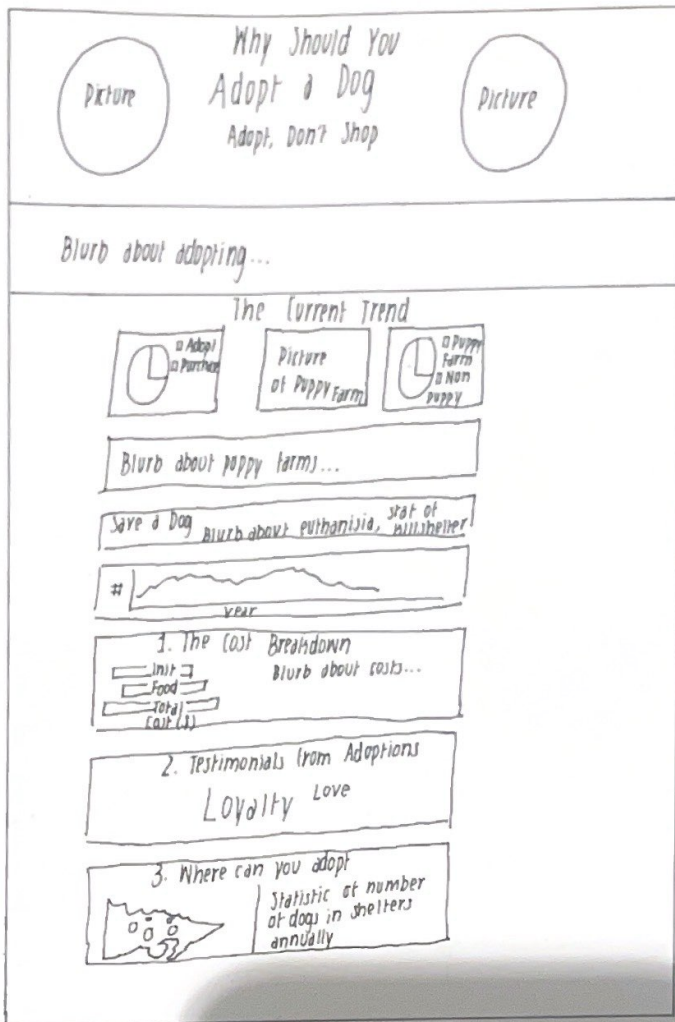 Why Should You
Adopt a Dog
Adopt, Don't Shop
Picture
Picture
Blurb about adopting...
The Current Trend
Adopt
Purchase
Picture
of Puppy Farm
Puppy
Farm
Non
Puppy
Blurb about puppy farms...
Save a Dog
Blurb about euthanisia, stat of
killshelter
#
year
1. The Cost Breakdown
Init
Food
Total
Cost ($)
Blurb about costs...
2. Testimonials from Adoptions
Loyalty
Love
3. Where can you adopt
Statistic of number
of dogs in shelters
annually